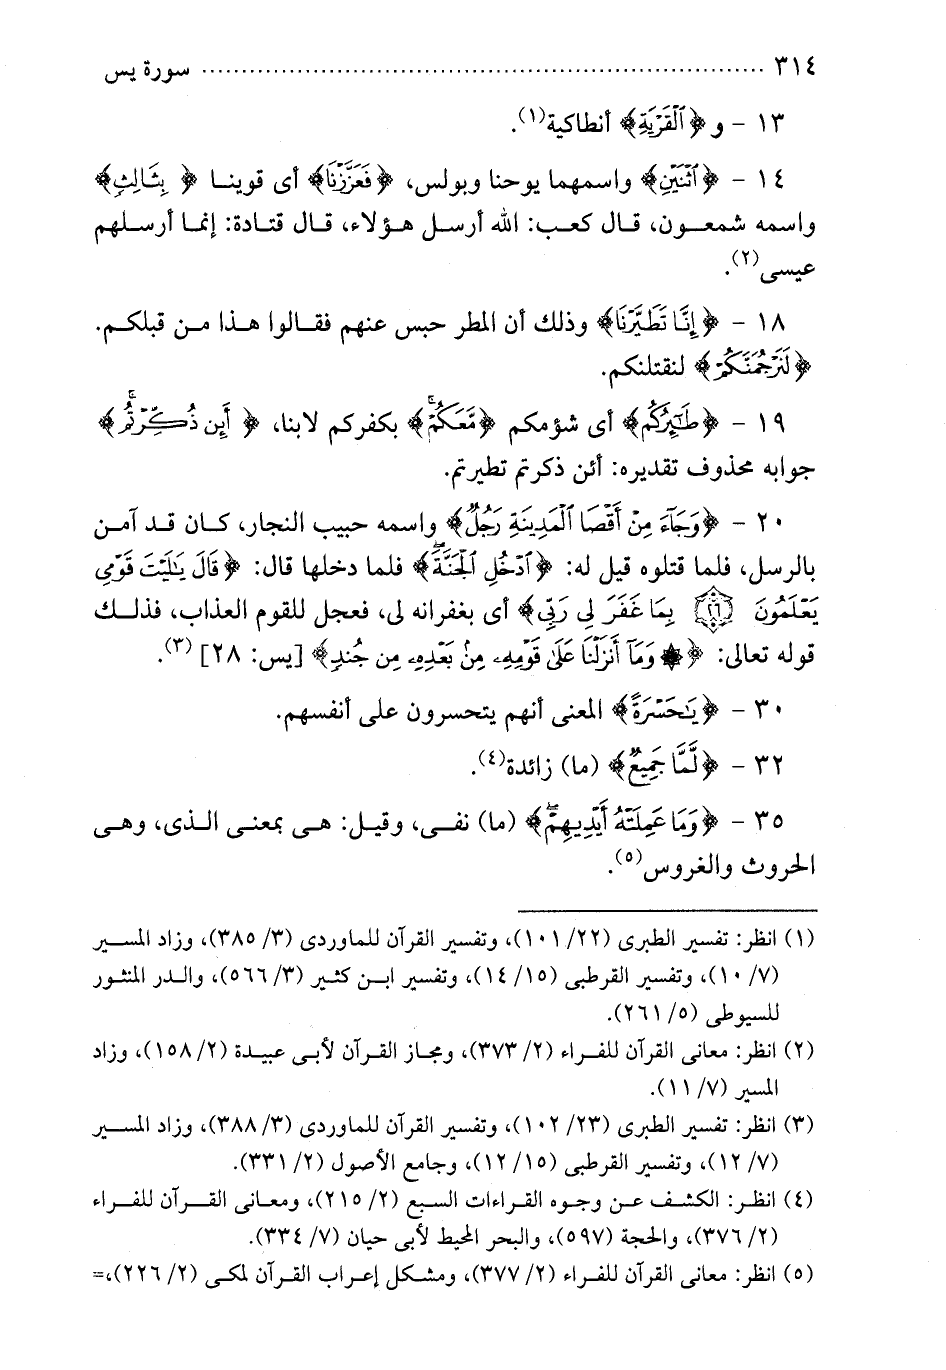 ٣١٤ ........................................................ سورة يس
١٣ - و ﴿ٱلْقَرْيَةِ﴾ أنطاكية(١).
١٤ - ﴿ٱثْنَيْنِ﴾ واسمهما يوحنا وبولس، ﴿فَعَزَّزْنَا﴾ أى قوينا ﴿بِثَالِثٍ﴾
واسمه شمعون، قال كعب: الله أرسل هؤلاء، قال قتادة: إنما أرسلهم
عيسى(٢).
١٨ - ﴿إِنَّا تَطَيَّرْنَا﴾ وذلك أن المطر حبس عنهم فقالوا هذا من قبلكم.
﴿لَنَرْجُمَنَّكُمْ﴾ لنقتلنكم.
١٩ - ﴿طَـٰٓئِرُكُم﴾ أى شؤمكم ﴿مَّعَكُمْ ۚ﴾ بكفركم لابنا، ﴿أَئِن ذُكِّرْتُم ۚ﴾
جوابه محذوف تقديره: أئن ذكرتم تطيرتم.
٢٠ - ﴿وَجَآءَ مِنْ أَقْصَا ٱلْمَدِينَةِ رَجُلٌ﴾ واسمه حبيب النجار، كان قد آمن
بالرسل، فلما قتلوه قيل له: ﴿ٱدْخُلِ ٱلْجَنَّةَ ۖ﴾ فلما دخلها قال: ﴿قَالَ يَـٰلَيْتَ قَوْمِى
يَعْلَمُونَ ۝٢٦ بِمَا غَفَرَ لِى رَبِّى﴾ أى بغفرانه لى، فعجل للقوم العذاب، فذلك
قوله تعالى: ﴿۞ وَمَآ أَنزَلْنَا عَلَىٰ قَوْمِهِۦ مِنۢ بَعْدِهِۦ مِن جُندٍ﴾ [يس: ٢٨] (٣).
٣٠ - ﴿يَـٰحَسْرَةً﴾ المعنى أنهم يتحسرون على أنفسهم.
٣٢ - ﴿لَّمَّا جَمِيعٌ﴾ (ما) زائدة(٤).
٣٥ - ﴿وَمَا عَمِلَتْهُ أَيْدِيهِمْ ۖ﴾ (ما) نفى، وقيل: هى بمعنى الذى، وهى
الحروث والغروس(٥).
(١) انظر: تفسير الطبرى (٢٢/ ١٠١)، وتفسير القرآن للماوردى (٣/ ٣٨٥)، وزاد المسير
(٧/ ١٠)، وتفسير القرطبى (١٥/ ١٤)، وتفسير ابن كثير (٣/ ٥٦٦)، والدر المنثور
للسيوطى (٥/ ٢٦١).
(٢) انظر: معانى القرآن للفراء (٢/ ٣٧٣)، ومجاز القرآن لأبى عبيدة (٢/ ١٥٨)، وزاد
المسير (٧/ ١١).
(٣) انظر: تفسير الطبرى (٢٣/ ١٠٢)، وتفسير القرآن للماوردى (٣/ ٣٨٨)، وزاد المسير
(٧/ ١٢)، وتفسير القرطبى (١٥/ ١٢)، وجامع الأصول (٢/ ٣٣١).
(٤) انظر: الكشف عن وجوه القراءات السبع (٢/ ٢١٥)، ومعانى القرآن للفراء
(٢/ ٣٧٦)، والحجة (٥٩٧)، والبحر المحيط لأبى حيان (٧/ ٣٣٤).
(٥) انظر: معانى القرآن للفراء (٢/ ٣٧٧)، ومشكل إعراب القرآن لمكى (٢/ ٢٢٦)،=